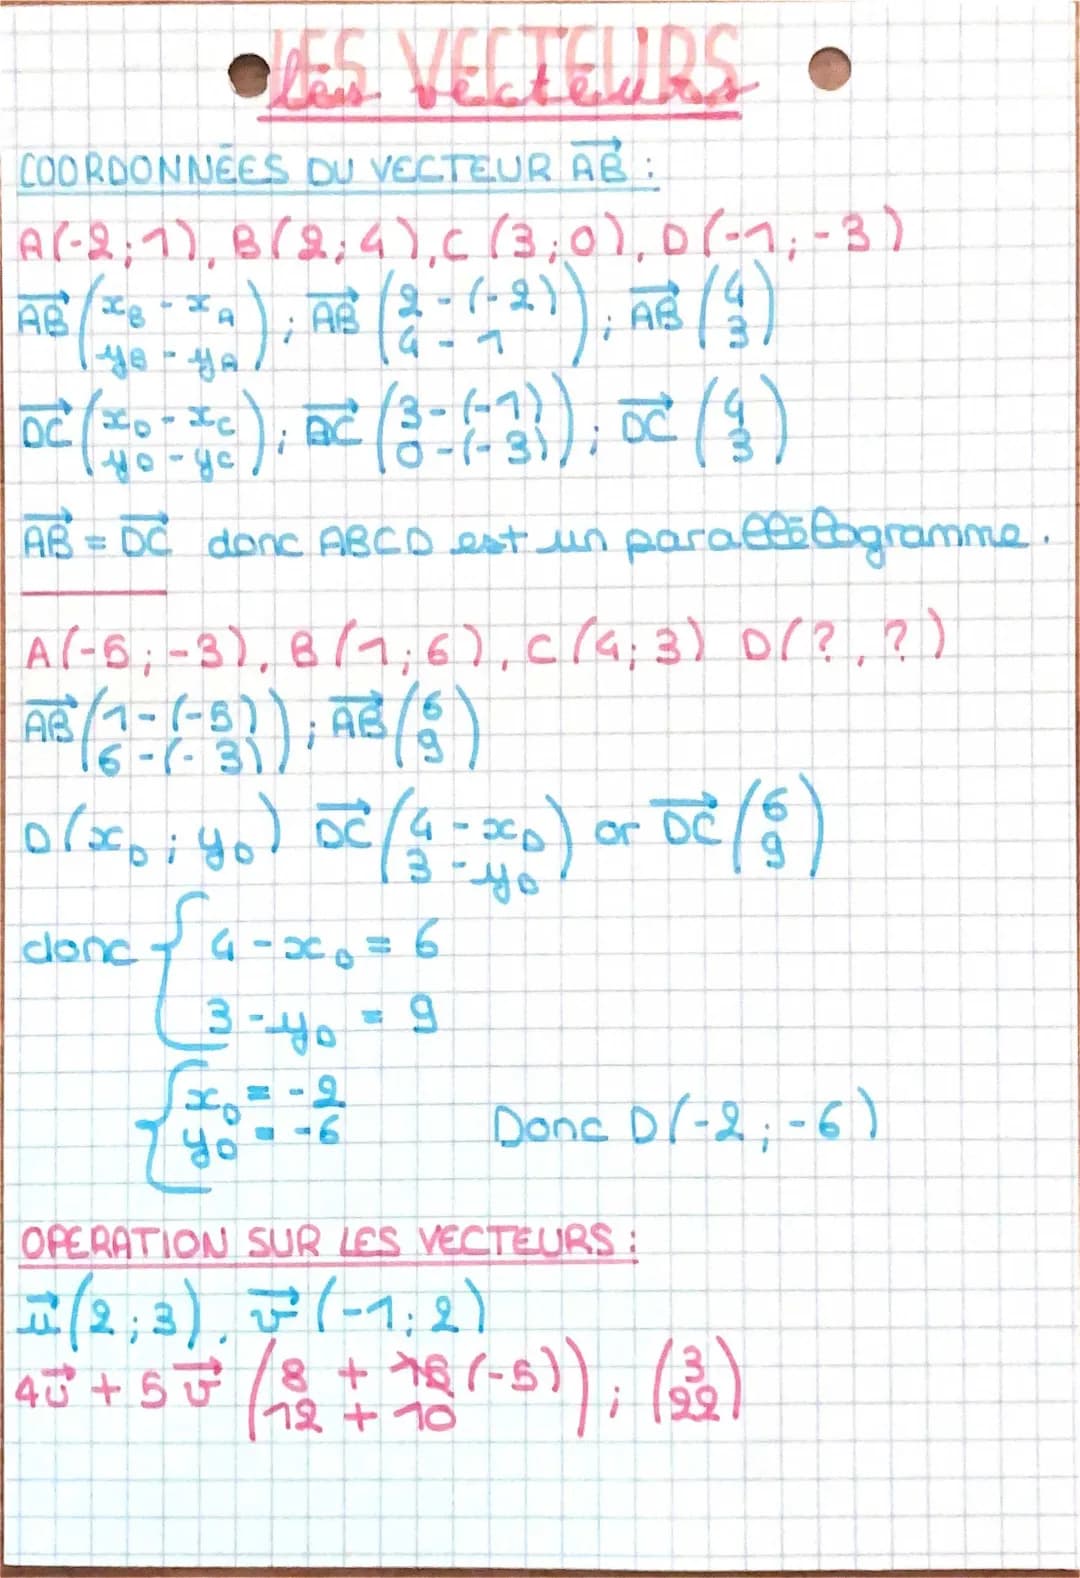 LES VECTEURS
les vecteurs
COORDONNÉES DU VECTEUR AB :
A(-2;1), B(2;4), C(3;0), D(-1;-3)
AB (xB - xA ; yB - yA) ; AB (2-(-2) ; 4-1) ; AB (4 ; 3)
DC (xD - xC ; yD - yC) ; DC (3-(-1) ; 0-(-3)) ; DC (4 ; 3)
AB = DC donc ABCD est un parallélogramme.
A(-5;-3), B(1;6), C(4;3) D(?,?)
AB (1-(-5) ; 6-(-3)) ; AB (6 ; 9)
D(xD ; yD) DC (4-xD ; 3-yD) or DC (6 ; 9)
donc { 4-xD = 6
3-yD = 9
{ xD = -2
yD = -6 Donc D(-2;-6)
OPERATION SUR LES VECTEURS :
u(2;3), v(-1;2)
4u + 5v (8 + (-5) ; 12 + 10) ; (3 ; 22)